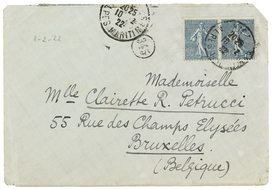 8-2-22
20 25
10 2
22
ALPES MARITIMES
Mademoiselle
Mlle Clairette R. Petrucci
55 Rue des Champs Elysées
Bruxelles
(Belgique)